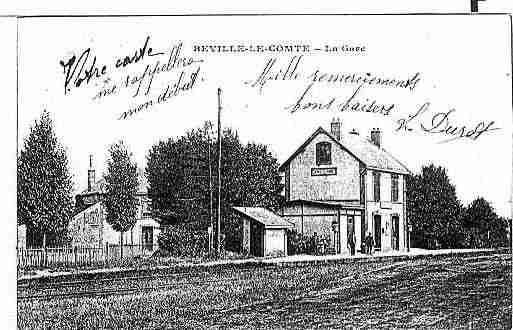 BEVILLE-LE-COMTE – La Gare
Votre carte
me rappellera
mon début.
Mille remerciements
bons baisers
L. Durot